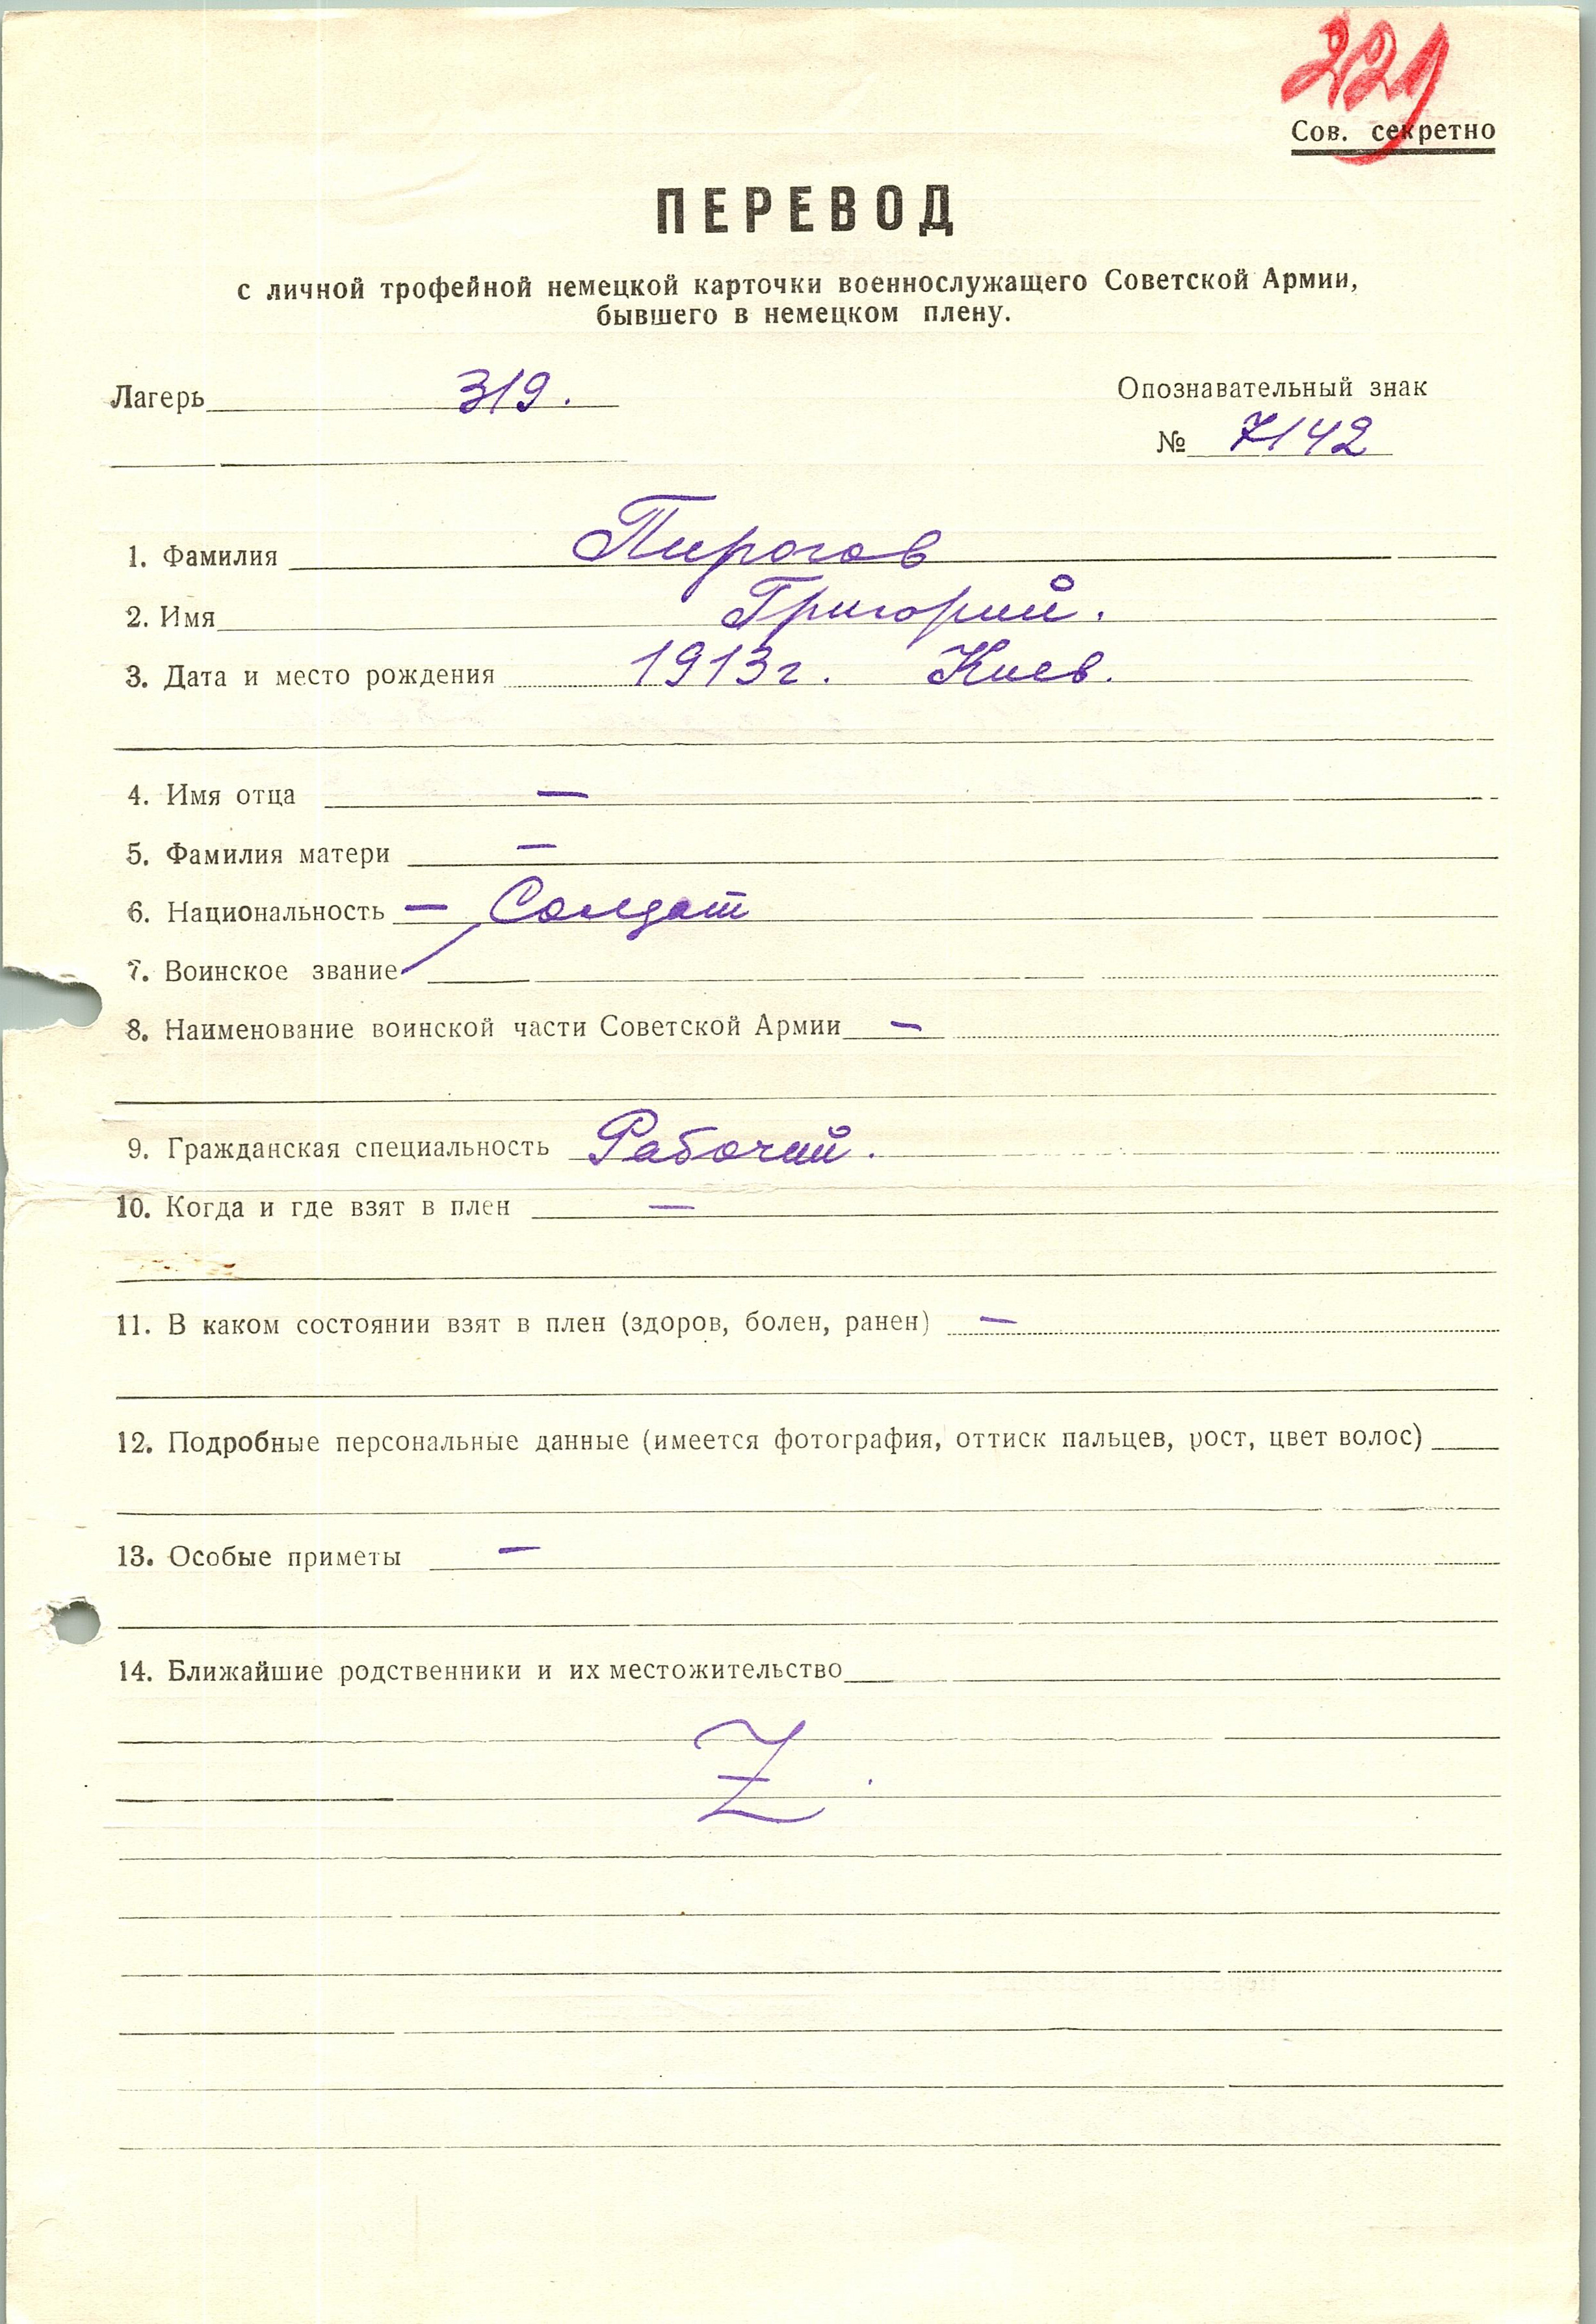 229
Сов. секретно
ПЕРЕВОД
с личной трофейной немецкой карточки военнослужащего Советской Армии,
бывшего в немецком плену.
Лагерь 319.
Опознавательный знак
№ 7142
1. Фамилия Пирогов
2. Имя Григорий.
3. Дата и место рождения 1913г. Киев.
4. Имя отца —
5. Фамилия матери —
6. Национальность — Солдат
7. Воинское звание
8. Наименование воинской части Советской Армии —
9. Гражданская специальность Рабочий.
10. Когда и где взят в плен —
11. В каком состоянии взят в плен (здоров, болен, ранен) —
12. Подробные персональные данные (имеется фотография, оттиск пальцев, рост, цвет волос)
13. Особые приметы —
14. Ближайшие родственники и их местожительство
Z